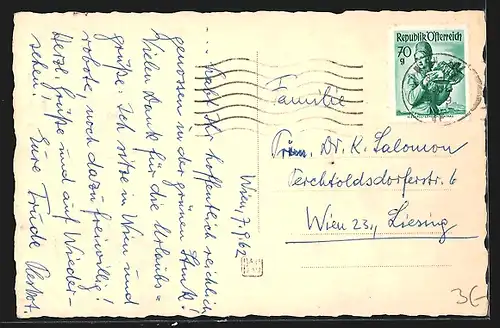 Republik Österreich
70
g
Familie
Dr. K. Salomon
Perchtoldsdorferstr. 6
Wien 23., Liesing
Wien 7.9.62
... habt Ihr hoffentlich reichlich
genossen in der grünen
Vielen Dank für die Urlaubs=
grüße. Ich sitze in Wien und
robote, noch dazu freiwillig!
Herzl. Grüße und auf Wieder-
sehen!
Eure Trude
3E